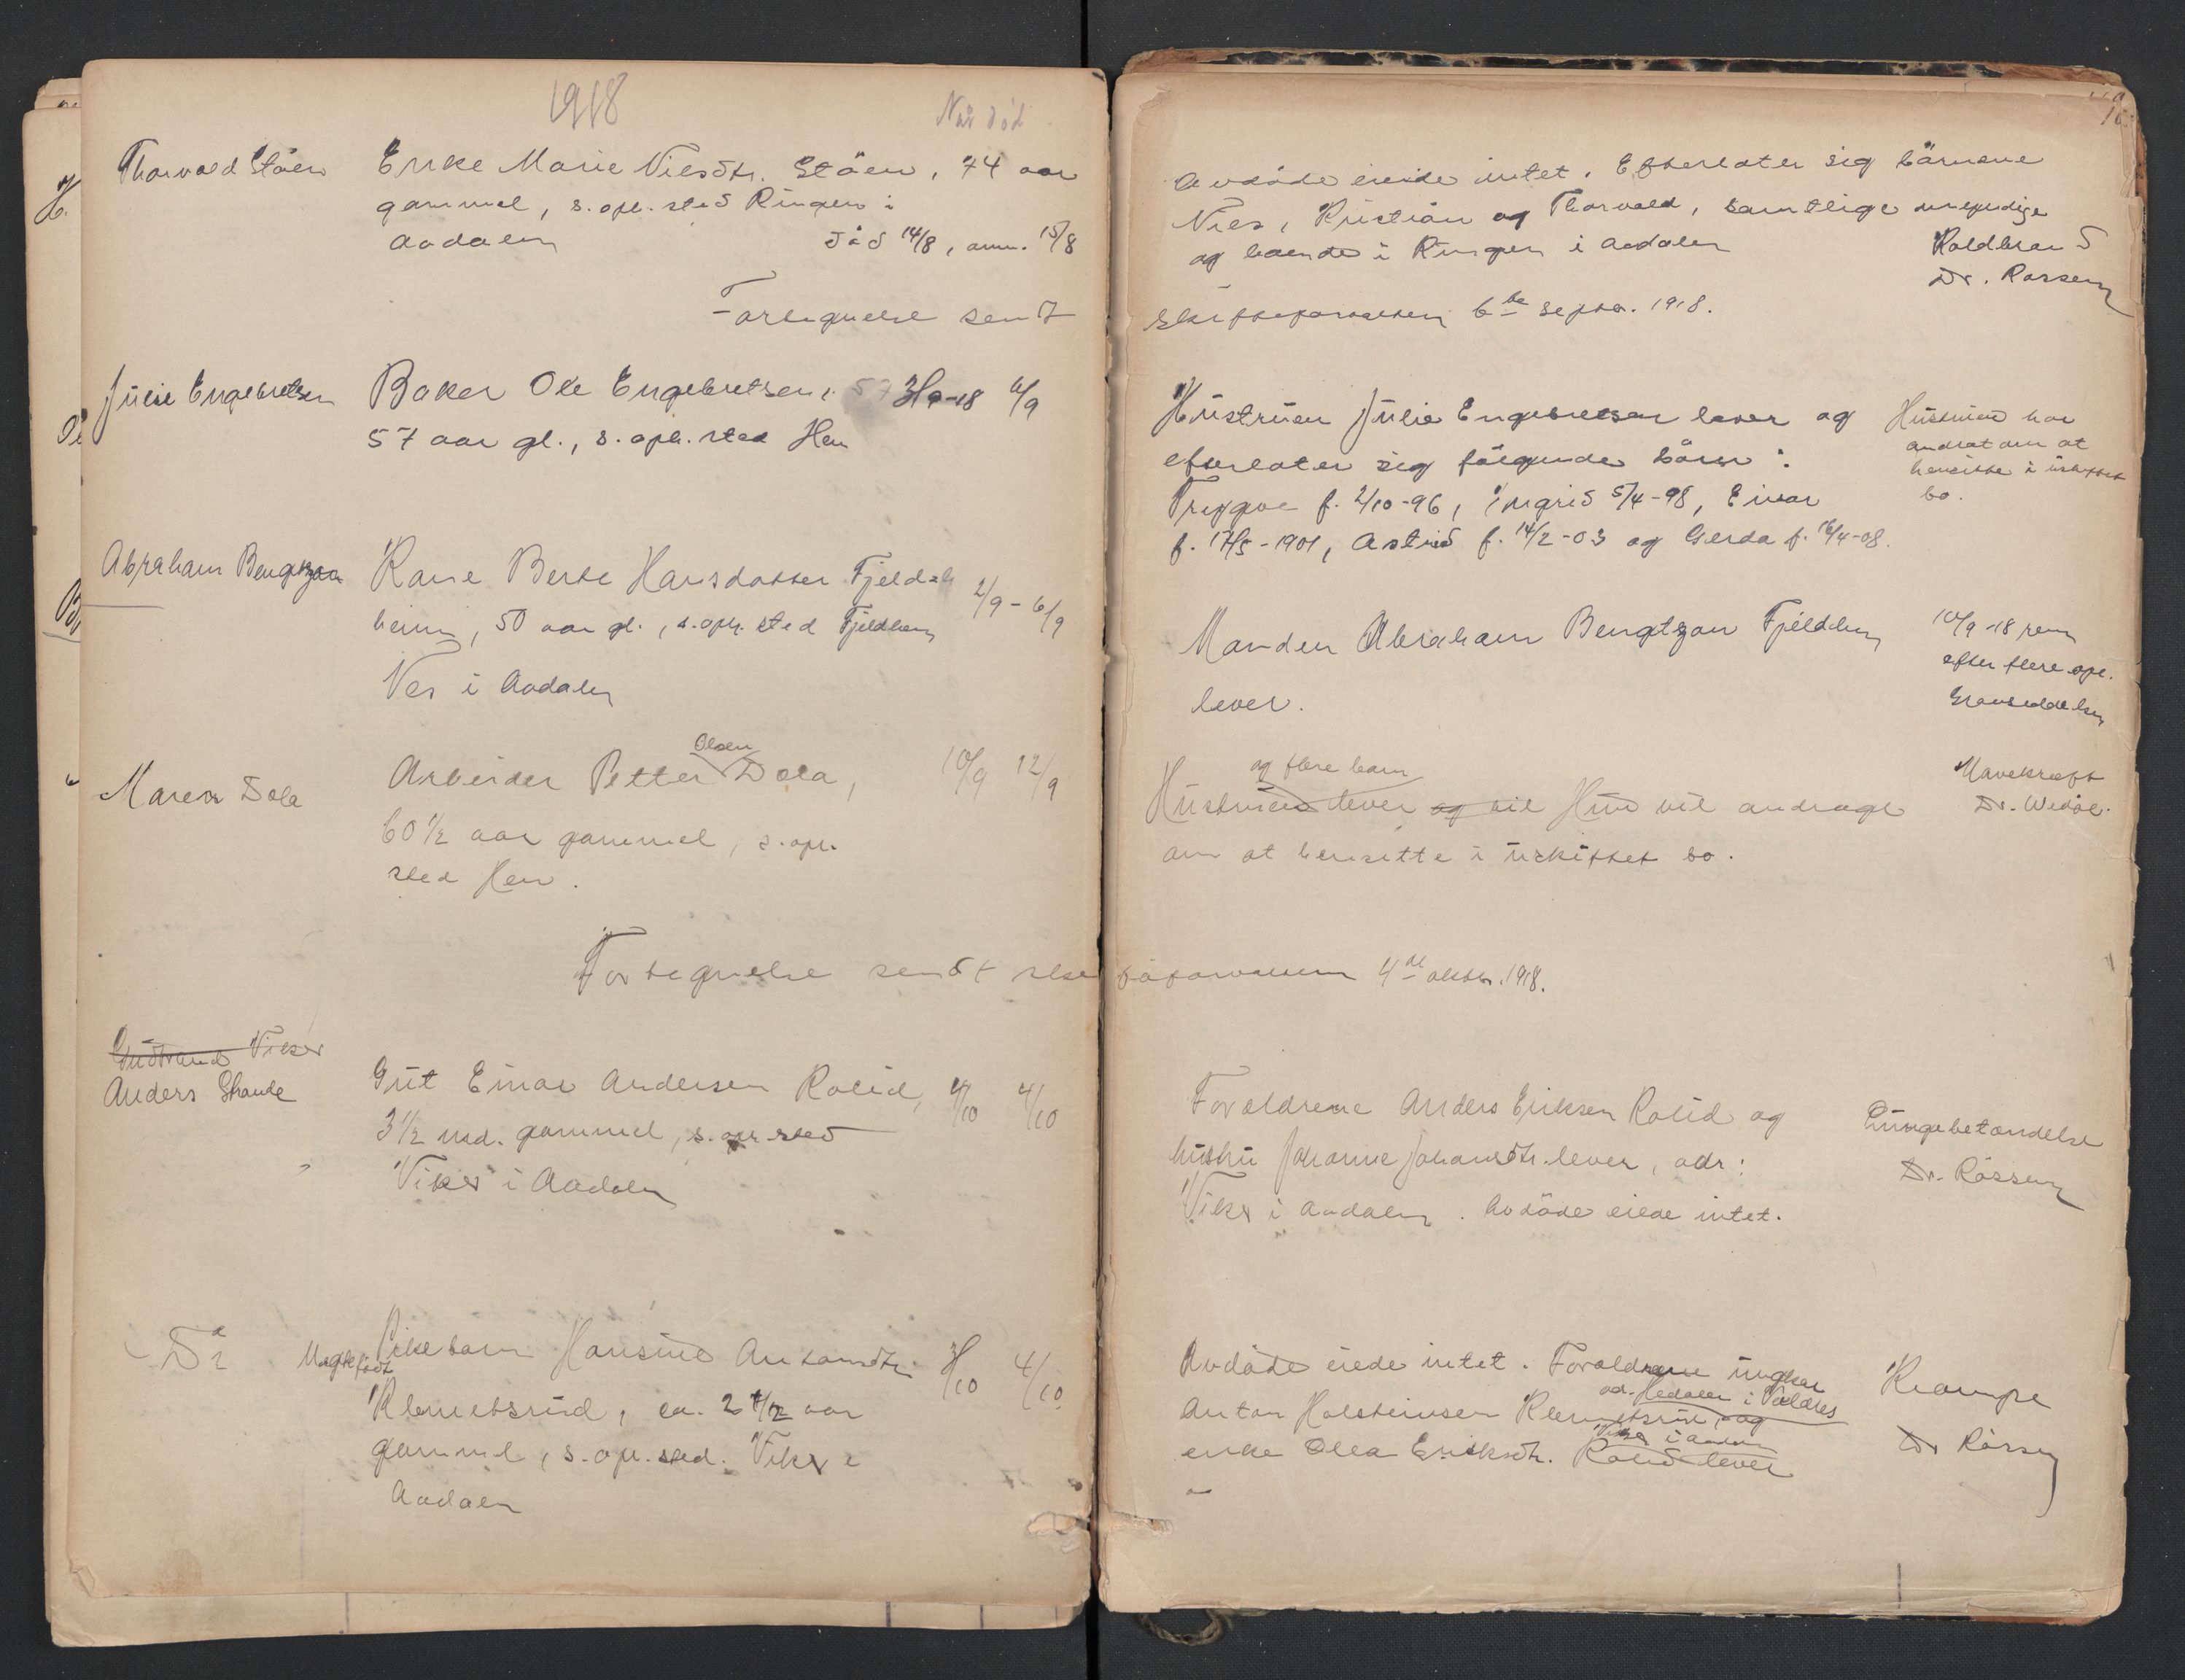 1918
Når død
Thorvald Støen
Enke Marie Nilsdtr. Støen, 74 aar
gammel, s. oph. sted Ringen i
Aadalen
død 14/8, anm. 15/8
Fortegnelse sendt
Julie Engebretsen
Baker Ole Engebretsen,
57 aar gl., s. oph. sted Hen
6/9
Abraham Bengtzon
Kone Berte Hansdatter Fjeld-
heim, 50 aar gl., s. oph. sted Fjeldheim
2/9 - 6/9
Nes i Aadalen
Maren Dola
Olsen
Arbeider Petter Dola,
10/9 12/9
60 1/2 aar gammel, s. oph.
sted Hen.
Fortegnelse sendt skifteforvalteren 4de oktbr. 1918.
Gudbrand Viker
Anders Strande
Gut Einar Andersen Rolid,
4/10
3 1/2 md. gammel, s. oph. sted
Viker i Aadalen
Do
Uægtefødt
Pikebarn Hansine Antonsdtr.
3/10 4/10
Klemetsrud, ca. 2 1/2 aar
gammel, s. oph. sted. Viker i
Aadalen
Avdøde eiede intet. Efterlater sig børnene
Nils, Kristian og Thorvald, samtlige myndige
og boende i Ringen i Aadalen
Koldbrand
Dr. Rossen
Skifteforvalteren 6te septbr. 1918.
Hustruen Julie Engebretsen lever og
efterlater sig følgende børn:
Trygve f. 2/10-96, Ingrid 5/4-98, Einar
f. 17/5-1901, Astrid f. 14/2-03 og Gerda f. 16/4-08.
Hustruen har
andrat om at
hensitte i uskiftet
bo.
Manden Abraham Bengtzon Fjeldheim
lever.
10/9-18 
efter flere
og flere barn
Hustruen lever og vil Hun vil andrage
om at hensitte i uskiftet bo.
Mavekræft
Dr. Wedøe.
Forældrene Anders Eriksen Rolid og
hustru Johanne Johansdtr. lever, adr:
Viker i Aadalen. Avdøde eiede intet.
Lungebetændelse
Dr. Rossen
Avdøde eiede intet. Forældrene ungkar
ad. Hedalen i Valdres
Anton Holsteinsen Klemetsrud, og
Viker i Aadalen
enke Olea Eriksdtr. Rolid lever
Krampe
Dr Rossen